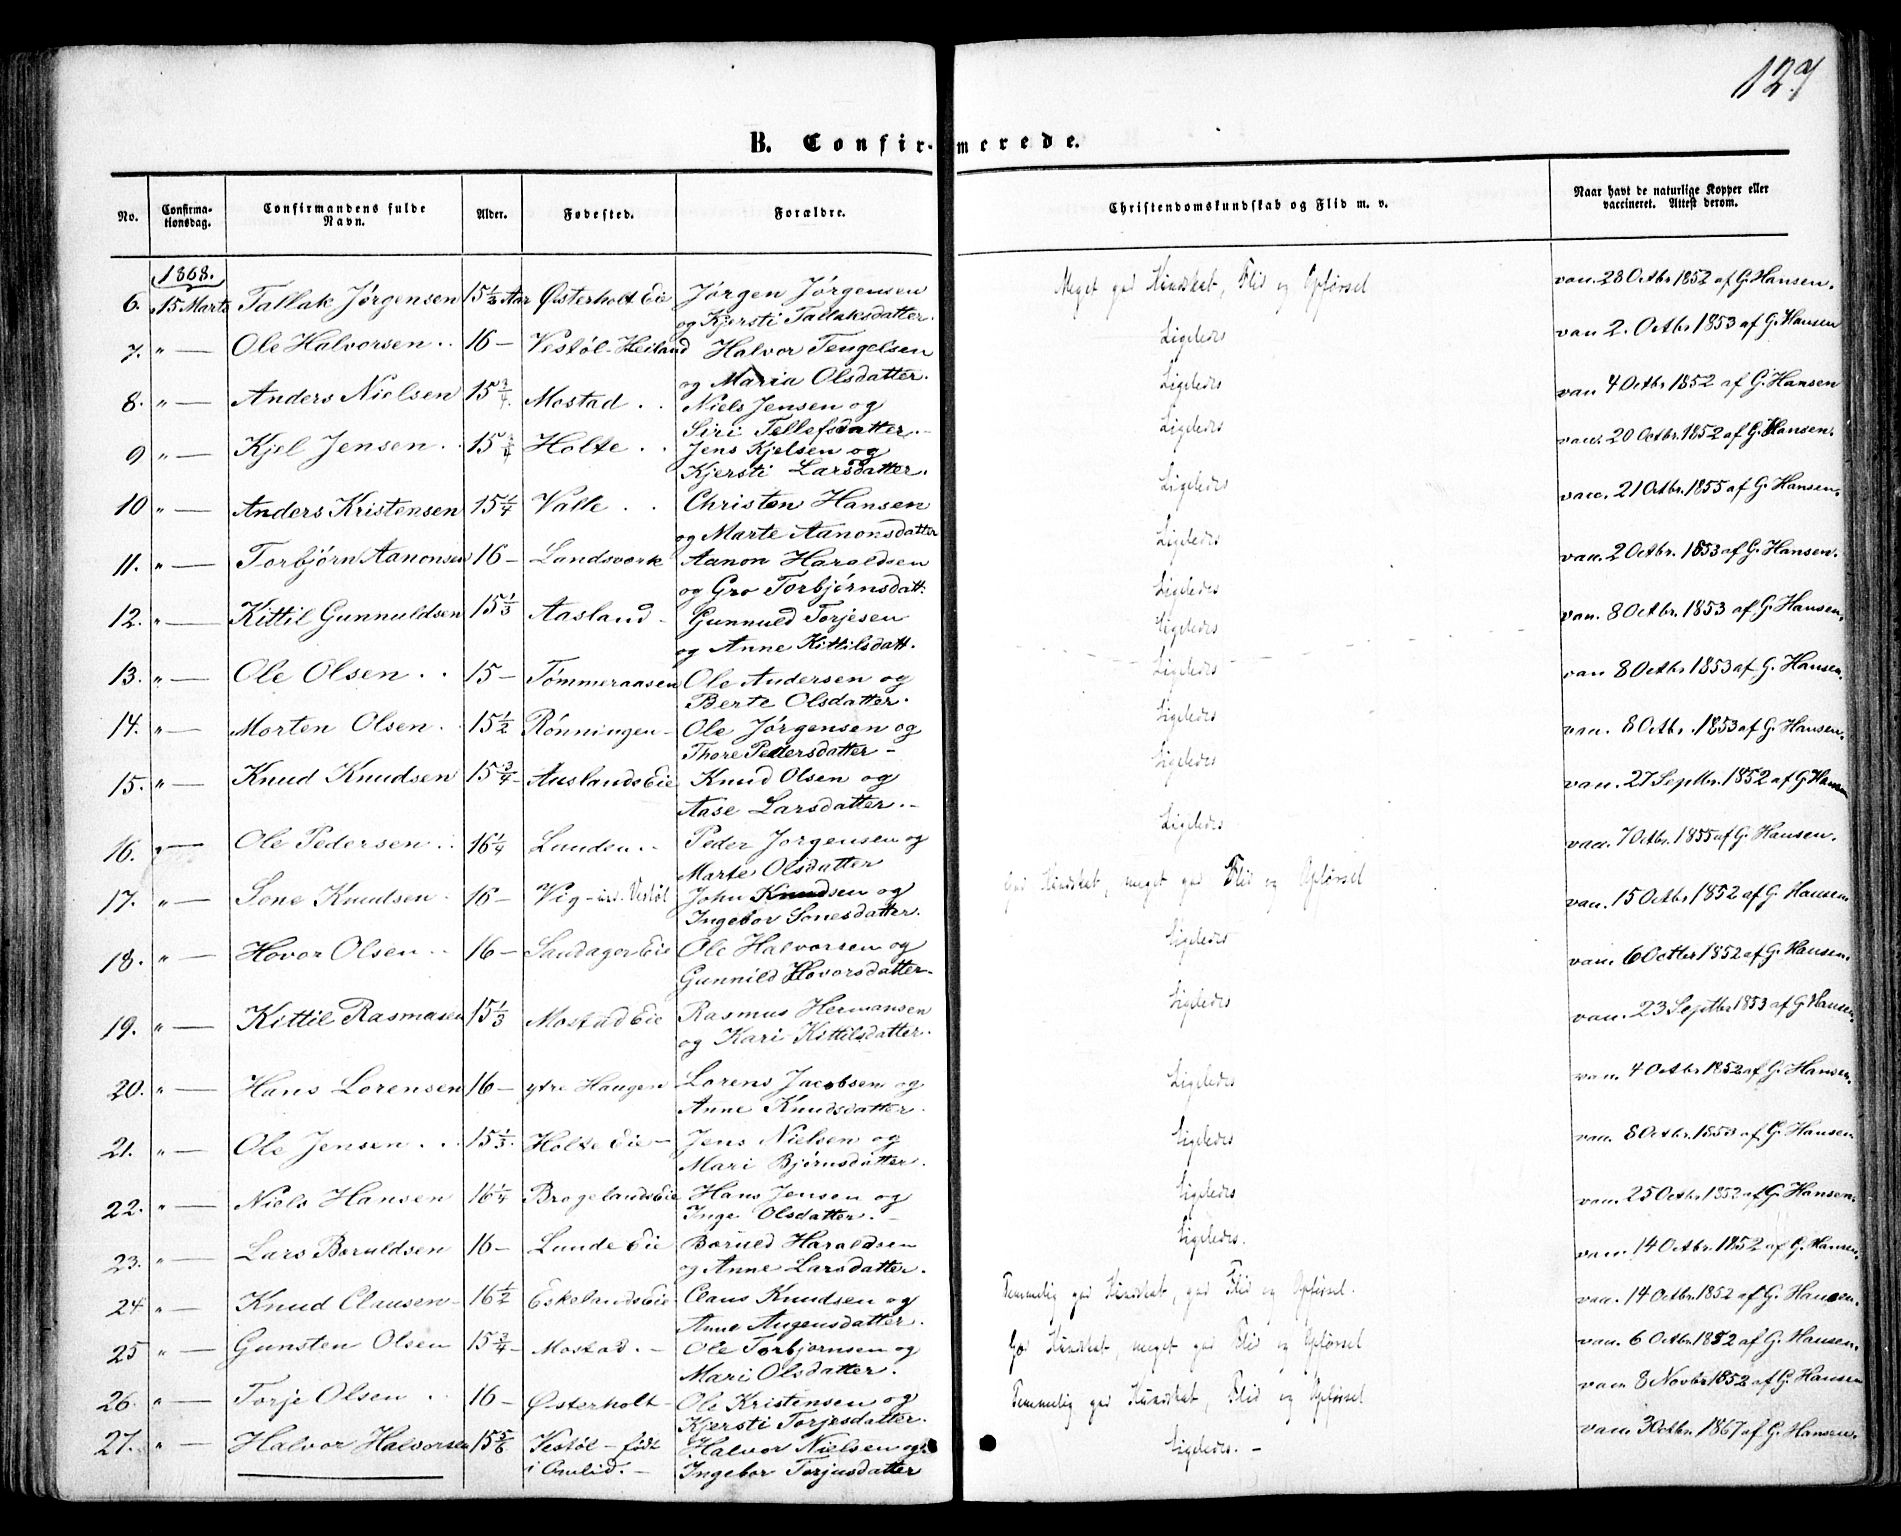 127
B. Confirmerede.
No. Confirmationsdag. Confirmandens fulde Navn. Alder. Fødested. Forældre. Christendomskundskab og Flid m. v. Naar havt de naturlige Kopper eller vaccineret. Attest derom.
1868.
6. 15 Marts Tallak Jørgensen 15 1/2 Aar Østerholt Eie Jørgen Jørgensen og Kjersti Tallaksdatter. Meget god Kundskab, Flid og Opførsel vac. 28 Octbr 1852 af G. Hansen.
7. " — Ole Halvorsen .. 16 — Vestøl-Heiland Halvor Tengelsen og Maria Olsdatter. Ligeledes vac 2. Octbr 1853 af G. Hansen
8. " — Anders Nielsen 15 3/4. Mostad .. Niels Jensen og Siri Tellefsdatter. Ligeledes vac 4 Octbr 1852 af G. Hansen
9 " — Kjel Jensen .. 15 Holte .. Jens Kjelsen og Kjersti Larsdatter. Ligeledes vac. 20 Octbr. 1852 af G. Hansen.
10 " — Anders Kristensen 15 1/4 Valle .. Christen Hansen og Marte Aanonsdatter Ligeledes vac. 21 Octbr. 1855 af G. Hansen.
11. " — Torbjørn Aanonsen 16 — Landsverk Aanon Haraldsen og Gro Torbjørnsdatt: Ligeledes vac. 2 Octbr. 1853 af G. Hansen.
12. " — Kittil Gunnuldsen 15 1/3 Aasland - Gunnuld Torjesen og Anne Kittilsdatt. Ligeledes vac. 8 Octbr. 1853 af G. Hansen.
Ligeledes
13. " — Ole Olsen .. 15 — Tømmeraasen Ole Andersen og Berte Olsdatter. Ligeledes vac 8 Octbr 1853 af G. Hansen.
14. " — Morten Olsen . 15 1/2 Rønningen - Ole Jørgensen og Thore Pedersdatter - Ligeledes vac. 8 Octbr. 1853 af G. Hansen.
15. " — Knud Knudsen 15 3/4 Auslands Eie Knud Olsen og Aase Larsdatter. - Ligeledes vac. 27 Septbr. 1852 af G. Hansen
16. " — Ole Pedersen .. 16 1/4 Lunden .. Peder Jørgensen og Marte Olsdatter Ligeledes vac. 7 Octbr. 1855 af G. Hansen.
17. " — Sone Knudsen . 16 — Vig - Vestøl John Knudsen og Ingebor Sonesdatter. God Kundskab, meget god Flid og Opførsel vac. 15 Octbr 1852 af G. Hansen.
18. " — Hovor Olsen .. 16 — Saudager Eie Ole Halvorsen og Gunnild Hovorsdatter. Ligeledes vac. 6 Octber 1852 af G. Hansen.
19. " — Kittil Rasmusen 15 1/3 Mostad Eie Rasmus Hermansen og Kari Kittilsdatter. Ligeledes vac. 23 Septbr 1853 af G. Hansen.
20. " — Hans Lorensen 16 — ytre Haugen Lorens Jacobsen og Anne Knudsdatter. Ligeledes vac. 4 Octbr 1852 af G. Hansen.
21. " — Ole Jensen .. 15 1/3. Holte Eie — Jens Nielsen og Mari Bjørnsdatter. Ligeledes vac. 8 Octbr. 1853 af G. Hansen
22. " — Niels Hansen 16 1/4 Bregelands Eie Hans Jensen og Inge Olsdatter. Ligeledes vac. 25 Octbr 1852 af G. Hansen.
23. " — Lars Boruldsen 16 — Lunde Eie Boruld Haraldsen og Anne Larsdatter. Ligeledes. vac. 14 Octbr. 1852 af G. Hansen.
24 " — Knud Clausen - 16 1/2 Eskelands Eie Claus Knudsen og Anne Augensdatter. Temmelig god Kundskab, god Flid og Opførsel. vac. 14 Octbr. 1852 af G. Hansen.
25 " — Gunsten Olsen 15 3/4 - Mostad. — Ole Torbjørnsen og Mari Olsdatter. God Kundskab, meget god Flid og Opførsel vac. 6 Octbr. 1852 af G. Hansen.
26. " — Torje Olsen .. 16 — Østerholt - Ole Kristensen og Kjersti Torjesdatter. Temmelig god Kundskab, Flid og Opførsel vac 8 Novbr 1852 af G. Hansen
27. " — Halvor Halvorsen 15 5/6 Vestøl — født i Omlid. — Halvor Nielsen og Ingebor Torjusdatter Ligeledes. — vac. 3 Octbr. 1867 af G. Hansen.